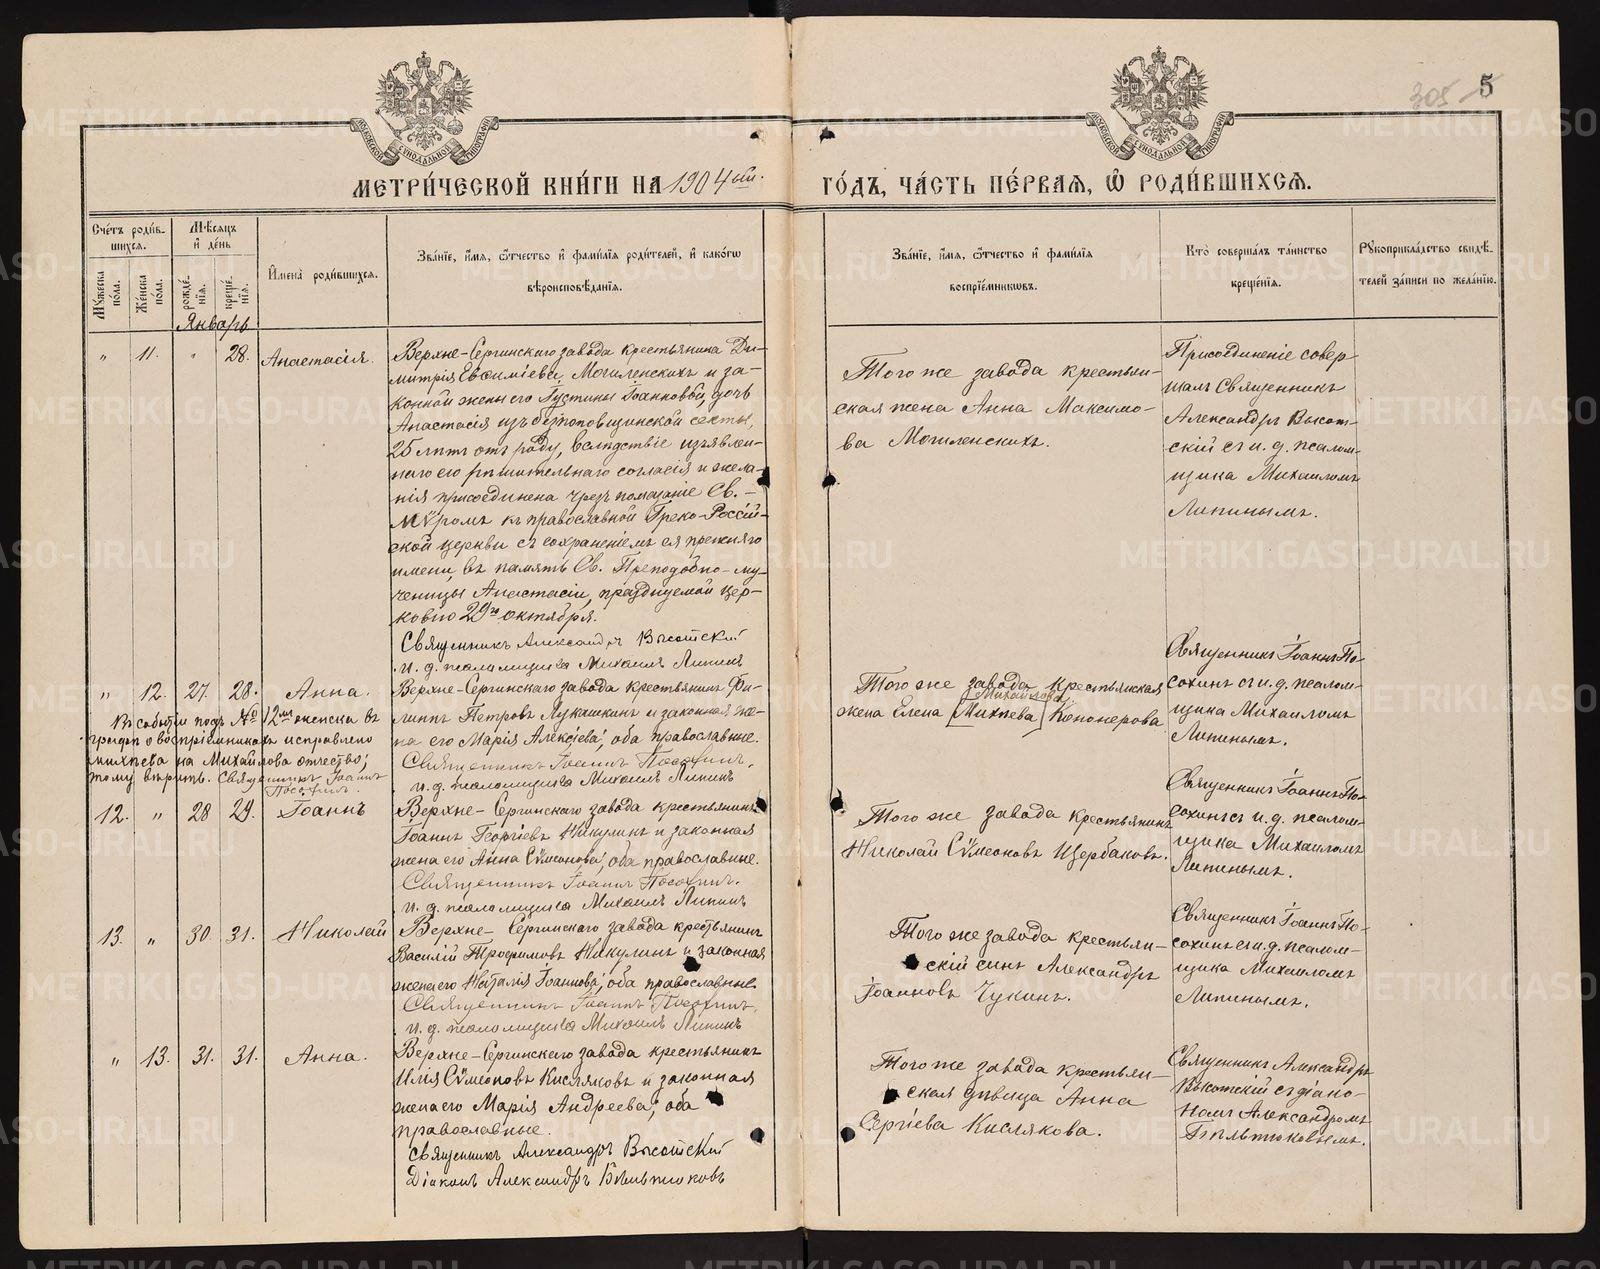 305 5
МЕТРИ́ЧЕСКОЙ КНИ́ГИ НА 1904ый. ГО́ДЪ, ЧА́СТЬ ПЕ́РВАЯ, Ѽ РОДИ́ВШИХСЯ.
Сче́тъ роди́в-
шихся.
Мѣ́сяцъ
и де́нь
Му́жеска по́ла.
Же́нска по́ла.
рожде́-
нія.
креще́-
нія.
Имена̀ роди́вшихся.
Зва́ніе, и́мя, ѻ́тчество и фами́лія роди́телей, и како́гѡ
вѣроисповѣ́данія.
Зва́ніе, и́мя, ѻ́тчество и фами́лія
воспріе́мникѡвъ.
Кто̀ соверша́лъ та́инство
креще́нія.
Рукоприкла́дство свидѣ́-
телей за́писи по жела́нію.
Январь
" 11. " 28. Анастасія.
Верхне-Сергинскаго завода крестьянина Ди-
митрія Евѳиміева Могиленскихъ и за-
конной жены его Іустины Іоанновой, дочь
Анастасія изъ безпоповщинской секты,
25 лѣтъ отъ роду, вслѣдствіе изъявлен-
наго ею рѣшительнаго согласія и жела-
нія присоединена чрезъ помазаніе Св. -
Мѵромъ къ православной Греко-Россій-
ской церкви съ сохраненіемъ ея прежняго
имени, въ память Св. Преподобно-му-
ченицы Анастасіи, празднуемой цер-
ковію 29го октября.
Священникъ Александръ Высотскій
и. д. псаломщика Михаилъ Липинъ
Того же завода крестьян-
ская жена Анна Максимо-
ва Могиленскихъ.
Присоединеніе совер-
шалъ Священникъ
Александръ Высот-
скій съ и. д. псалом-
щика Михаиломъ
Липинымъ.
" 12. 27. 28. Анна.
Верхне-Сергинскаго завода крестьянинъ Фи-
липпъ Петровъ Лукашкинъ и законная же-
на его Марія Алексіева, оба православные.
Священникъ Іоаннъ Посохинъ.
и. д. псаломщика Михаилъ Липинъ
Въ событіи подъ № 12мъ женска въ
графѣ о воспріемникахъ исправлено
Михѣева на Михайлова отчество;
тому вѣрить. Священникъ Іоаннъ
Посохинъ.
Того же завода крестьянская
Михайлова
жена Елена Михѣева Кононерова
Священникъ Іоаннъ По-
сохинъ съ и. д. псалом-
щика Михаиломъ
Липинымъ.
12. " 28 29. Іоаннъ
Верхне-Сергинскаго завода крестьянинъ
Іоаннъ Георгіевъ Никулинъ и законная
жена его Анна Сѵмеонова, оба православные.
Священникъ Іоаннъ Посохинъ.
и. д. псаломщика Михаилъ Липинъ
Того же завода крестьянинъ
Николай Сѵмеоновъ Щербаковъ.
Священникъ Іоаннъ По-
сохинъ съ и. д. псалом-
щика Михаиломъ
Липинымъ.
13. " 30. 31. Николай
Верхне-Сергинскаго завода крестьянинъ
Василій Трофимовъ Никулинъ и законная
жена его Наталія Іоаннова, оба православные.
Священникъ Іоаннъ Посохинъ.
и. д. псаломщика Михаилъ Липинъ
Того же завода крестьян-
скій сынъ Александръ
Іоанновъ Чукинъ.
Священникъ Іоаннъ По-
сохинъ съ и. д. псалом-
щика Михаиломъ
Липинымъ.
" 13. 31. 31. Анна.
Верхне-Сергинскаго завода крестьянинъ
Илія Сѵмеоновъ Кисляковъ и законная
жена его Марія Андреева, оба
православные.
Священникъ Александръ Высотскій
Діаконъ Александръ Бѣльтюковъ
Того же завода крестьян-
ская дѣвица Анна
Сергіева Кислякова.
Священникъ Александръ
Высотскій съ діако-
номъ Александромъ
Бѣльтюковымъ.
METRIKI.GASO-URAL.RU